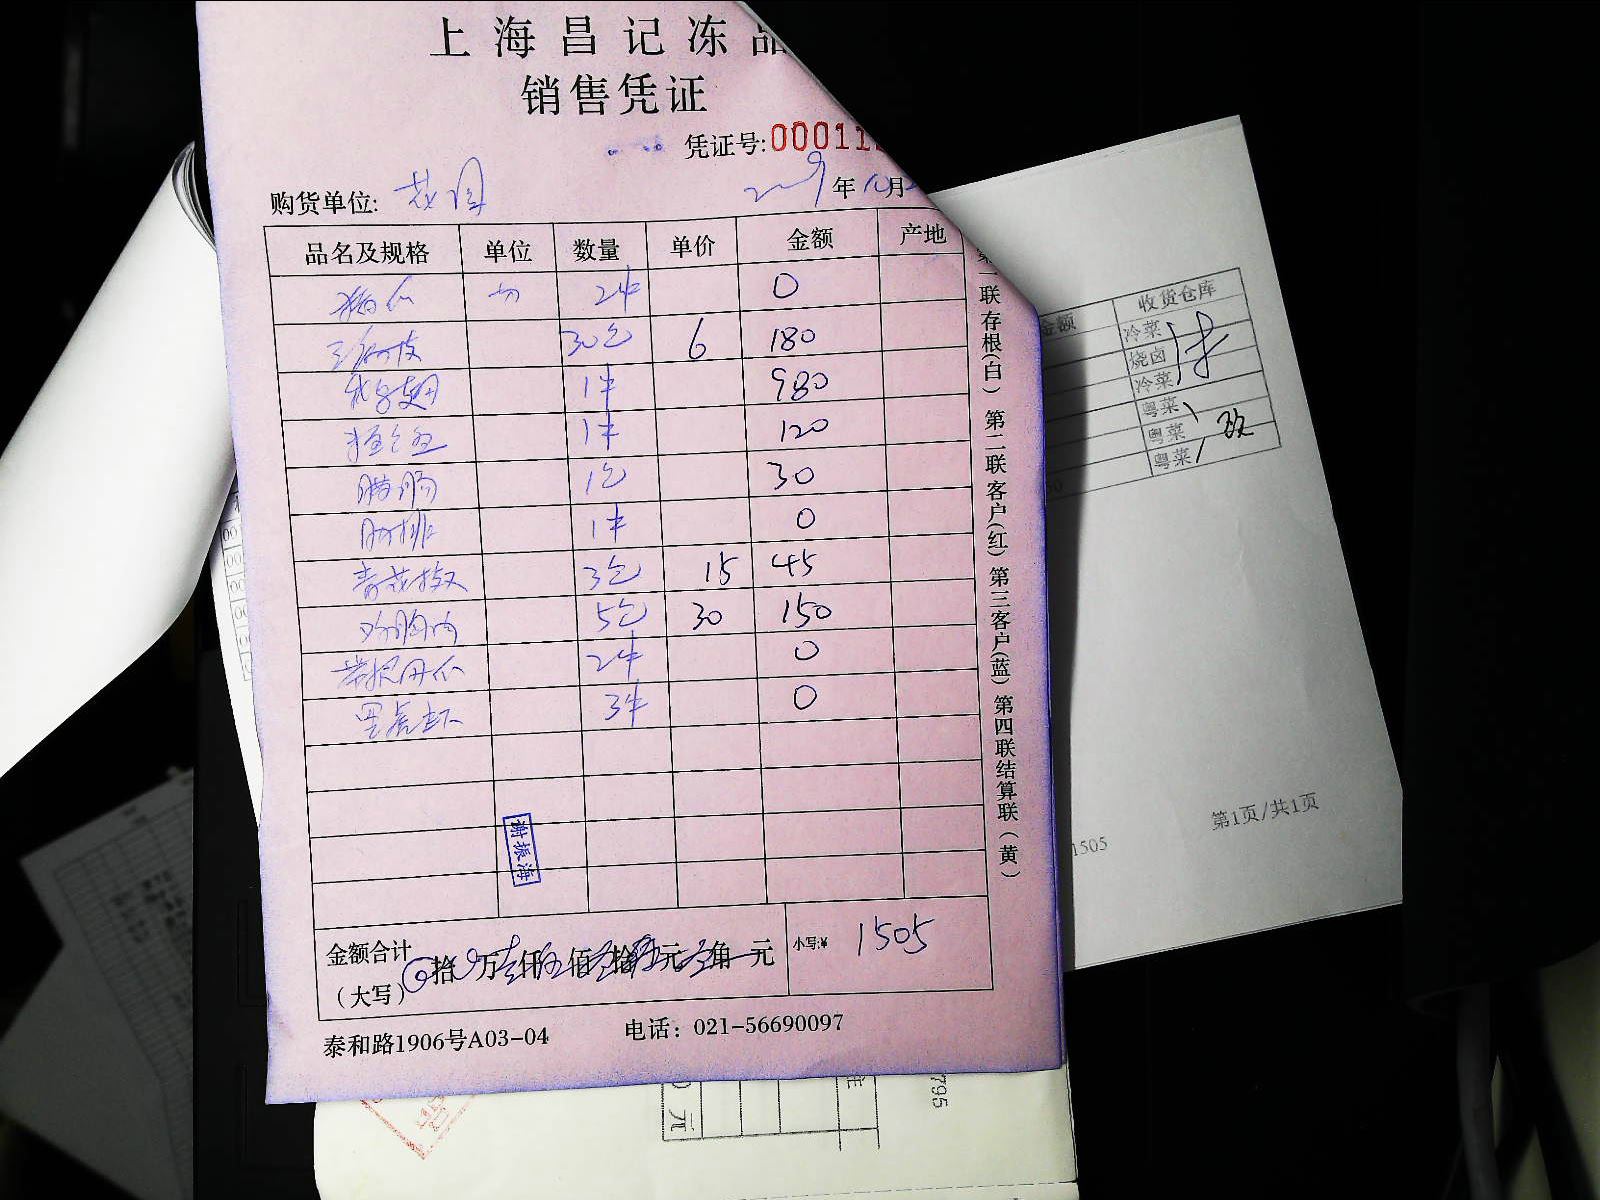 上海昌记冻品
销售凭证
凭证号:00011
购货单位: 花园 2009年10月
品名及规格 单位 数量 单价 金额 产地
2件 0
30包 6 180
1件 980
1件 120
腊肠 1包 30
肋排 1件 0
青花椒 3包 15 45
鸡胸肉 5包 30 150
2件 0
黑虎虾 3件 0
谢振海
金额合计
(大写) 拾 万 仟 佰 拾 元 角 元 小写:¥ 1505
泰和路1906号A03-04 电话: 021-56690097
第一联存根(白) 第二联客户(红) 第三客户(蓝) 第四联结算联(黄)
金额 收货仓库
冷菜
烧卤
冷菜
粤菜
粤菜
粤菜
第1页/共1页
1505
795
元